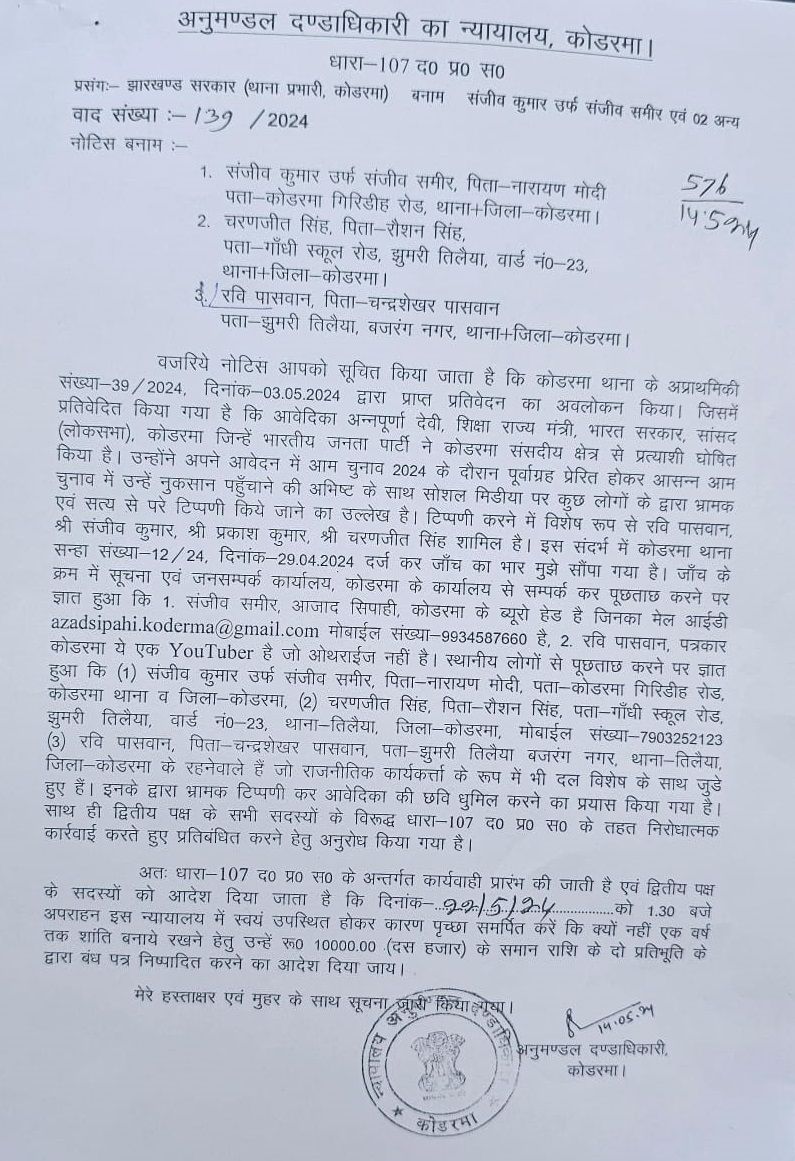 अनुमण्डल दण्डाधिकारी का न्यायालय, कोडरमा।
धारा–107 द0 प्र0 स0
प्रसंगः– झारखण्ड सरकार (थाना प्रभारी, कोडरमा) बनाम संजीव कुमार उर्फ संजीव समीर एवं 02 अन्य
वाद संख्या :– 139 /2024
नोटिस बनाम :–
576
14.5.24
1. संजीव कुमार उर्फ संजीव समीर, पिता–नारायण मोदी
पता–कोडरमा गिरिडीह रोड, थाना+जिला–कोडरमा।
2. चरणजीत सिंह, पिता–रौशन सिंह,
पता–गाँधी स्कूल रोड, झुमरी तिलैया, वार्ड नं0–23,
थाना+जिला–कोडरमा।
3. रवि पासवान, पिता–चन्द्रशेखर पासवान
पता–झुमरी तिलैया, बजरंग नगर, थाना+जिला–कोडरमा।
वजरिये नोटिस आपको सूचित किया जाता है कि कोडरमा थाना के अप्राथमिकी
संख्या–39/2024, दिनांक–03.05.2024 द्वारा प्राप्त प्रतिवेदन का अवलोकन किया। जिसमें
प्रतिवेदित किया गया है कि आवेदिका अन्नपूर्णा देवी, शिक्षा राज्य मंत्री, भारत सरकार, सांसद
(लोकसभा), कोडरमा जिन्हें भारतीय जनता पार्टी ने कोडरमा संसदीय क्षेत्र से प्रत्याशी घोषित
किया है। उन्होंने अपने आवेदन में आम चुनाव 2024 के दौरान पूर्वाग्रह प्रेरित होकर आसन्न आम
चुनाव में उन्हें नुकसान पहुँचाने की अभिष्ट के साथ सोशल मिडीया पर कुछ लोगों के द्वारा भ्रामक
एवं सत्य से परे टिप्पणी किये जाने का उल्लेख है। टिप्पणी करने में विशेष रूप से रवि पासवान,
श्री संजीव कुमार, श्री प्रकाश कुमार, श्री चरणजीत सिंह शामिल है। इस संदर्भ में कोडरमा थाना
सन्हा संख्या–12/24, दिनांक–29.04.2024 दर्ज कर जाँच का भार मुझे सौंपा गया है। जाँच के
क्रम में सूचना एवं जनसम्पर्क कार्यालय, कोडरमा के कार्यालय से सम्पर्क कर पूछताछ करने पर
ज्ञात हुआ कि 1. संजीव समीर, आजाद सिपाही, कोडरमा के ब्यूरो हेड है जिनका मेल आईडी
azadsipahi.koderma@gmail.com मोबाईल संख्या–9934587660 है, 2. रवि पासवान, पत्रकार
कोडरमा ये एक YouTuber है जो ओथराईज नहीं है। स्थानीय लोगों से पूछताछ करने पर ज्ञात
हुआ कि (1) संजीव कुमार उर्फ संजीव समीर, पिता–नारायण मोदी, पता–कोडरमा गिरिडीह रोड,
कोडरमा थाना व जिला–कोडरमा, (2) चरणजीत सिंह, पिता–रौशन सिंह, पता–गाँधी स्कूल रोड,
झुमरी तिलैया, वार्ड नं0–23, थाना–तिलैया, जिला–कोडरमा, मोबाईल संख्या–7903252123
(3) रवि पासवान, पिता–चन्द्रशेखर पासवान, पता–झुमरी तिलैया बजरंग नगर, थाना–तिलैया,
जिला–कोडरमा के रहनेवाले हैं जो राजनीतिक कार्यकर्त्ता के रूप में भी दल विशेष के साथ जुडे
हुए हैं। इनके द्वारा भ्रामक टिप्पणी कर आवेदिका की छवि धुमिल करने का प्रयास किया गया है।
साथ ही द्वितीय पक्ष के सभी सदस्यों के विरूद्ध धारा–107 द0 प्र0 स0 के तहत निरोधात्मक
कार्रवाई करते हुए प्रतिबंधित करने हेतु अनुरोध किया गया है।
अतः धारा–107 द0 प्र0 स0 के अन्तर्गत कार्यवाही प्रारंभ की जाती है एवं द्वितीय पक्ष
के सदस्यों को आदेश दिया जाता है कि दिनांक–..22/5/24..............को 1.30 बजे
अपराहन इस न्यायालय में स्वयं उपस्थित होकर कारण पृच्छा समर्पित करें कि क्यों नहीं एक वर्ष
तक शांति बनाये रखने हेतु उन्हें रू0 10000.00 (दस हजार) के समान राशि के दो प्रतिभूति के
द्वारा बंध पत्र निष्पादित करने का आदेश दिया जाय।
मेरे हस्ताक्षर एवं मुहर के साथ सूचना जारी किया गया।
14.05.24
अनुमण्डल दण्डाधिकारी,
कोडरमा।
न्यायालय अनुमण्डल दण्डाधिकारी
★ कोडरमा ★